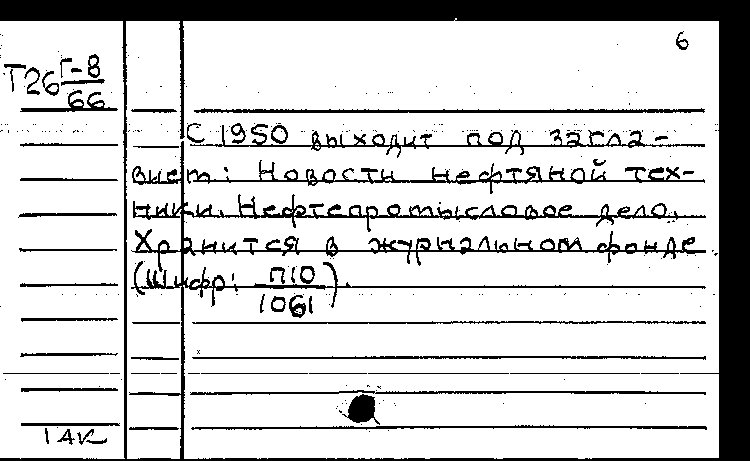 6
Т26 Г-8
66
С 1950 выходит под загла-
вием: Новости нефтяной тех-
ники. Нефтепромысловое дело.
Хранится в журнальном фонде
(Шифр: П10
1061).
1 АК